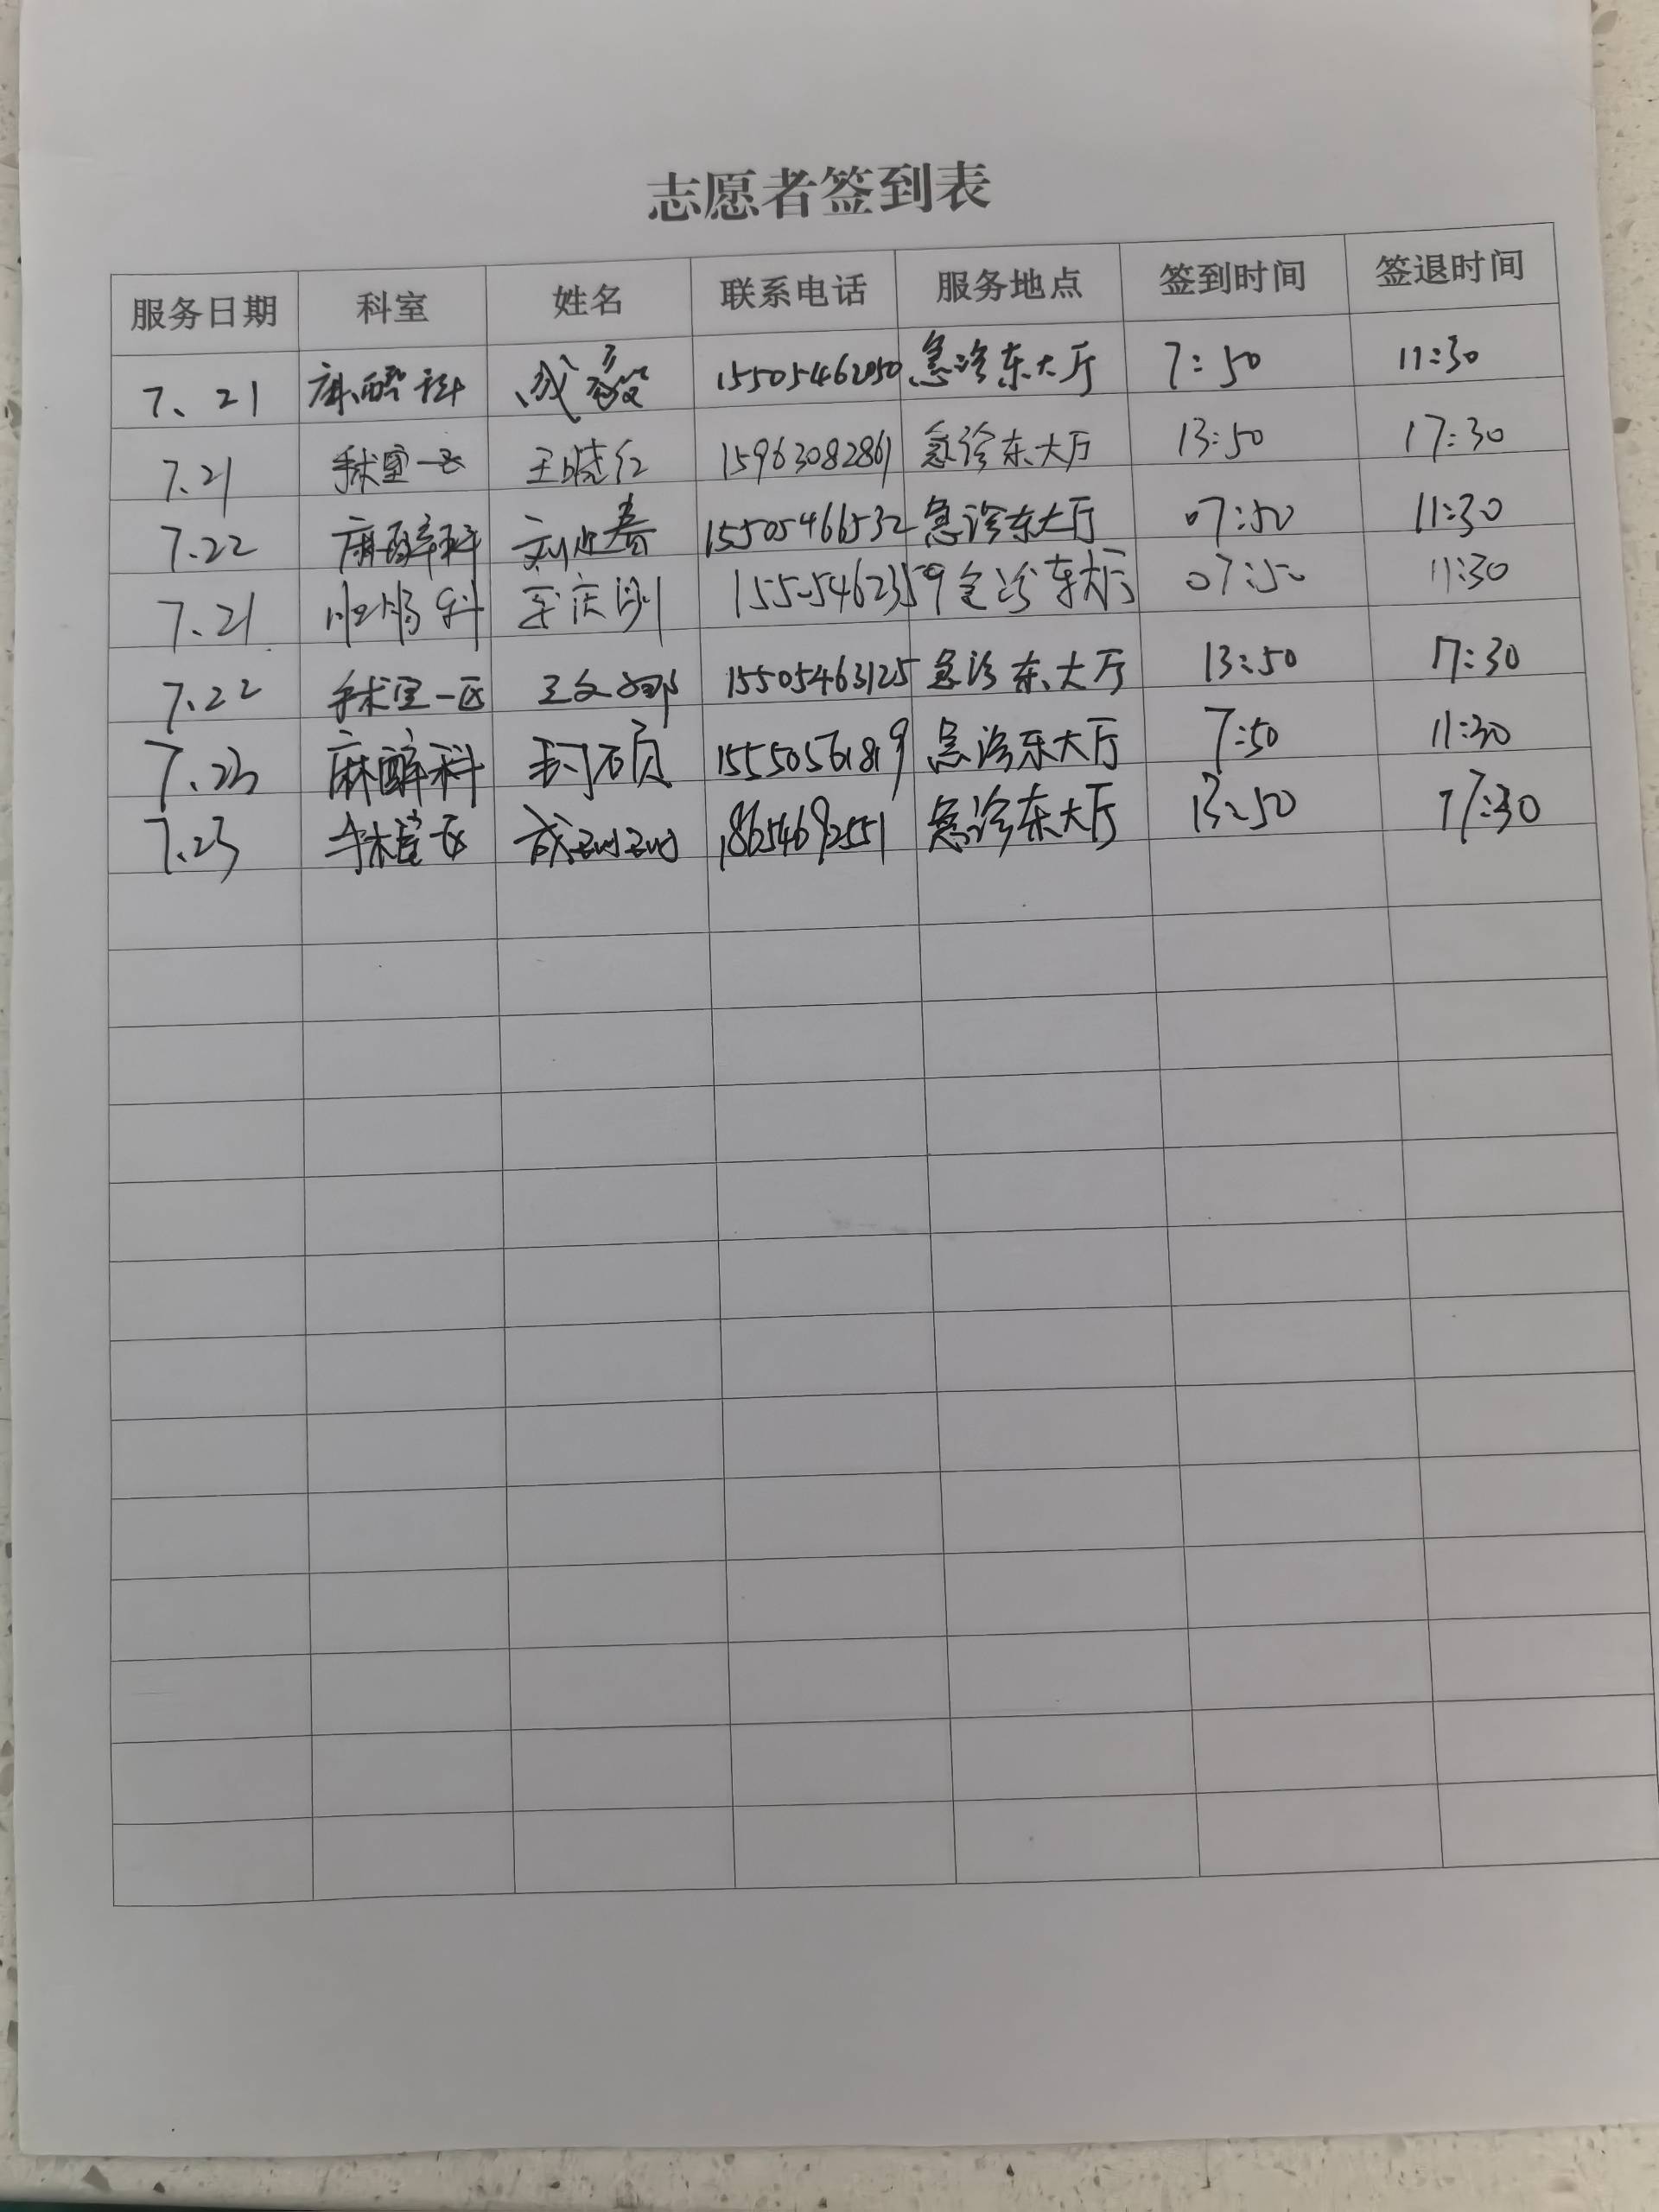 志愿者签到表
服务日期 科室 姓名 联系电话 服务地点 签到时间 签退时间
7、21 麻醉科 成毅 15505462050 急诊东大厅 7:50 11:30
7、21 手术室一区 王晓红 15963082861 急诊东大厅 13:50 17:30
7.22 麻醉科 刘迎春 15505466532 急诊东大厅 07:50 11:30
7、21 庆刚 15505462359 急诊东大厅 07:50 11:30
7.22 手术室一区 王文娜 15505463125 急诊东大厅 13:50 17:30
7.23 麻醉科 封硕 15550561819 急诊东大厅 7:50 11:30
7.23 手术室一区 成 18654692551 急诊东大厅 13:50 17:30